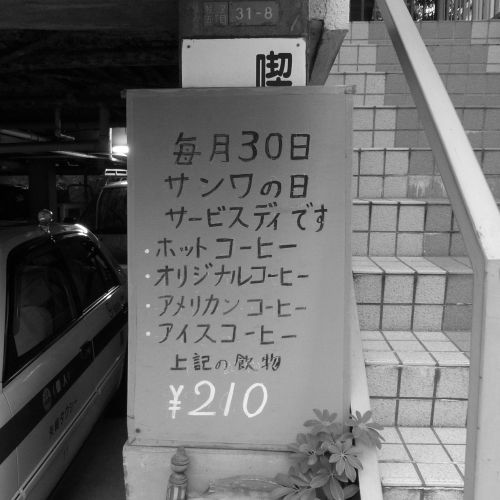 31-8
喫
毎月30日
サンワの日
サービスディです
・ホットコーヒー
・オリジナルコーヒー
・アメリカンコーヒー
・アイスコーヒー
上記の飲物
¥210